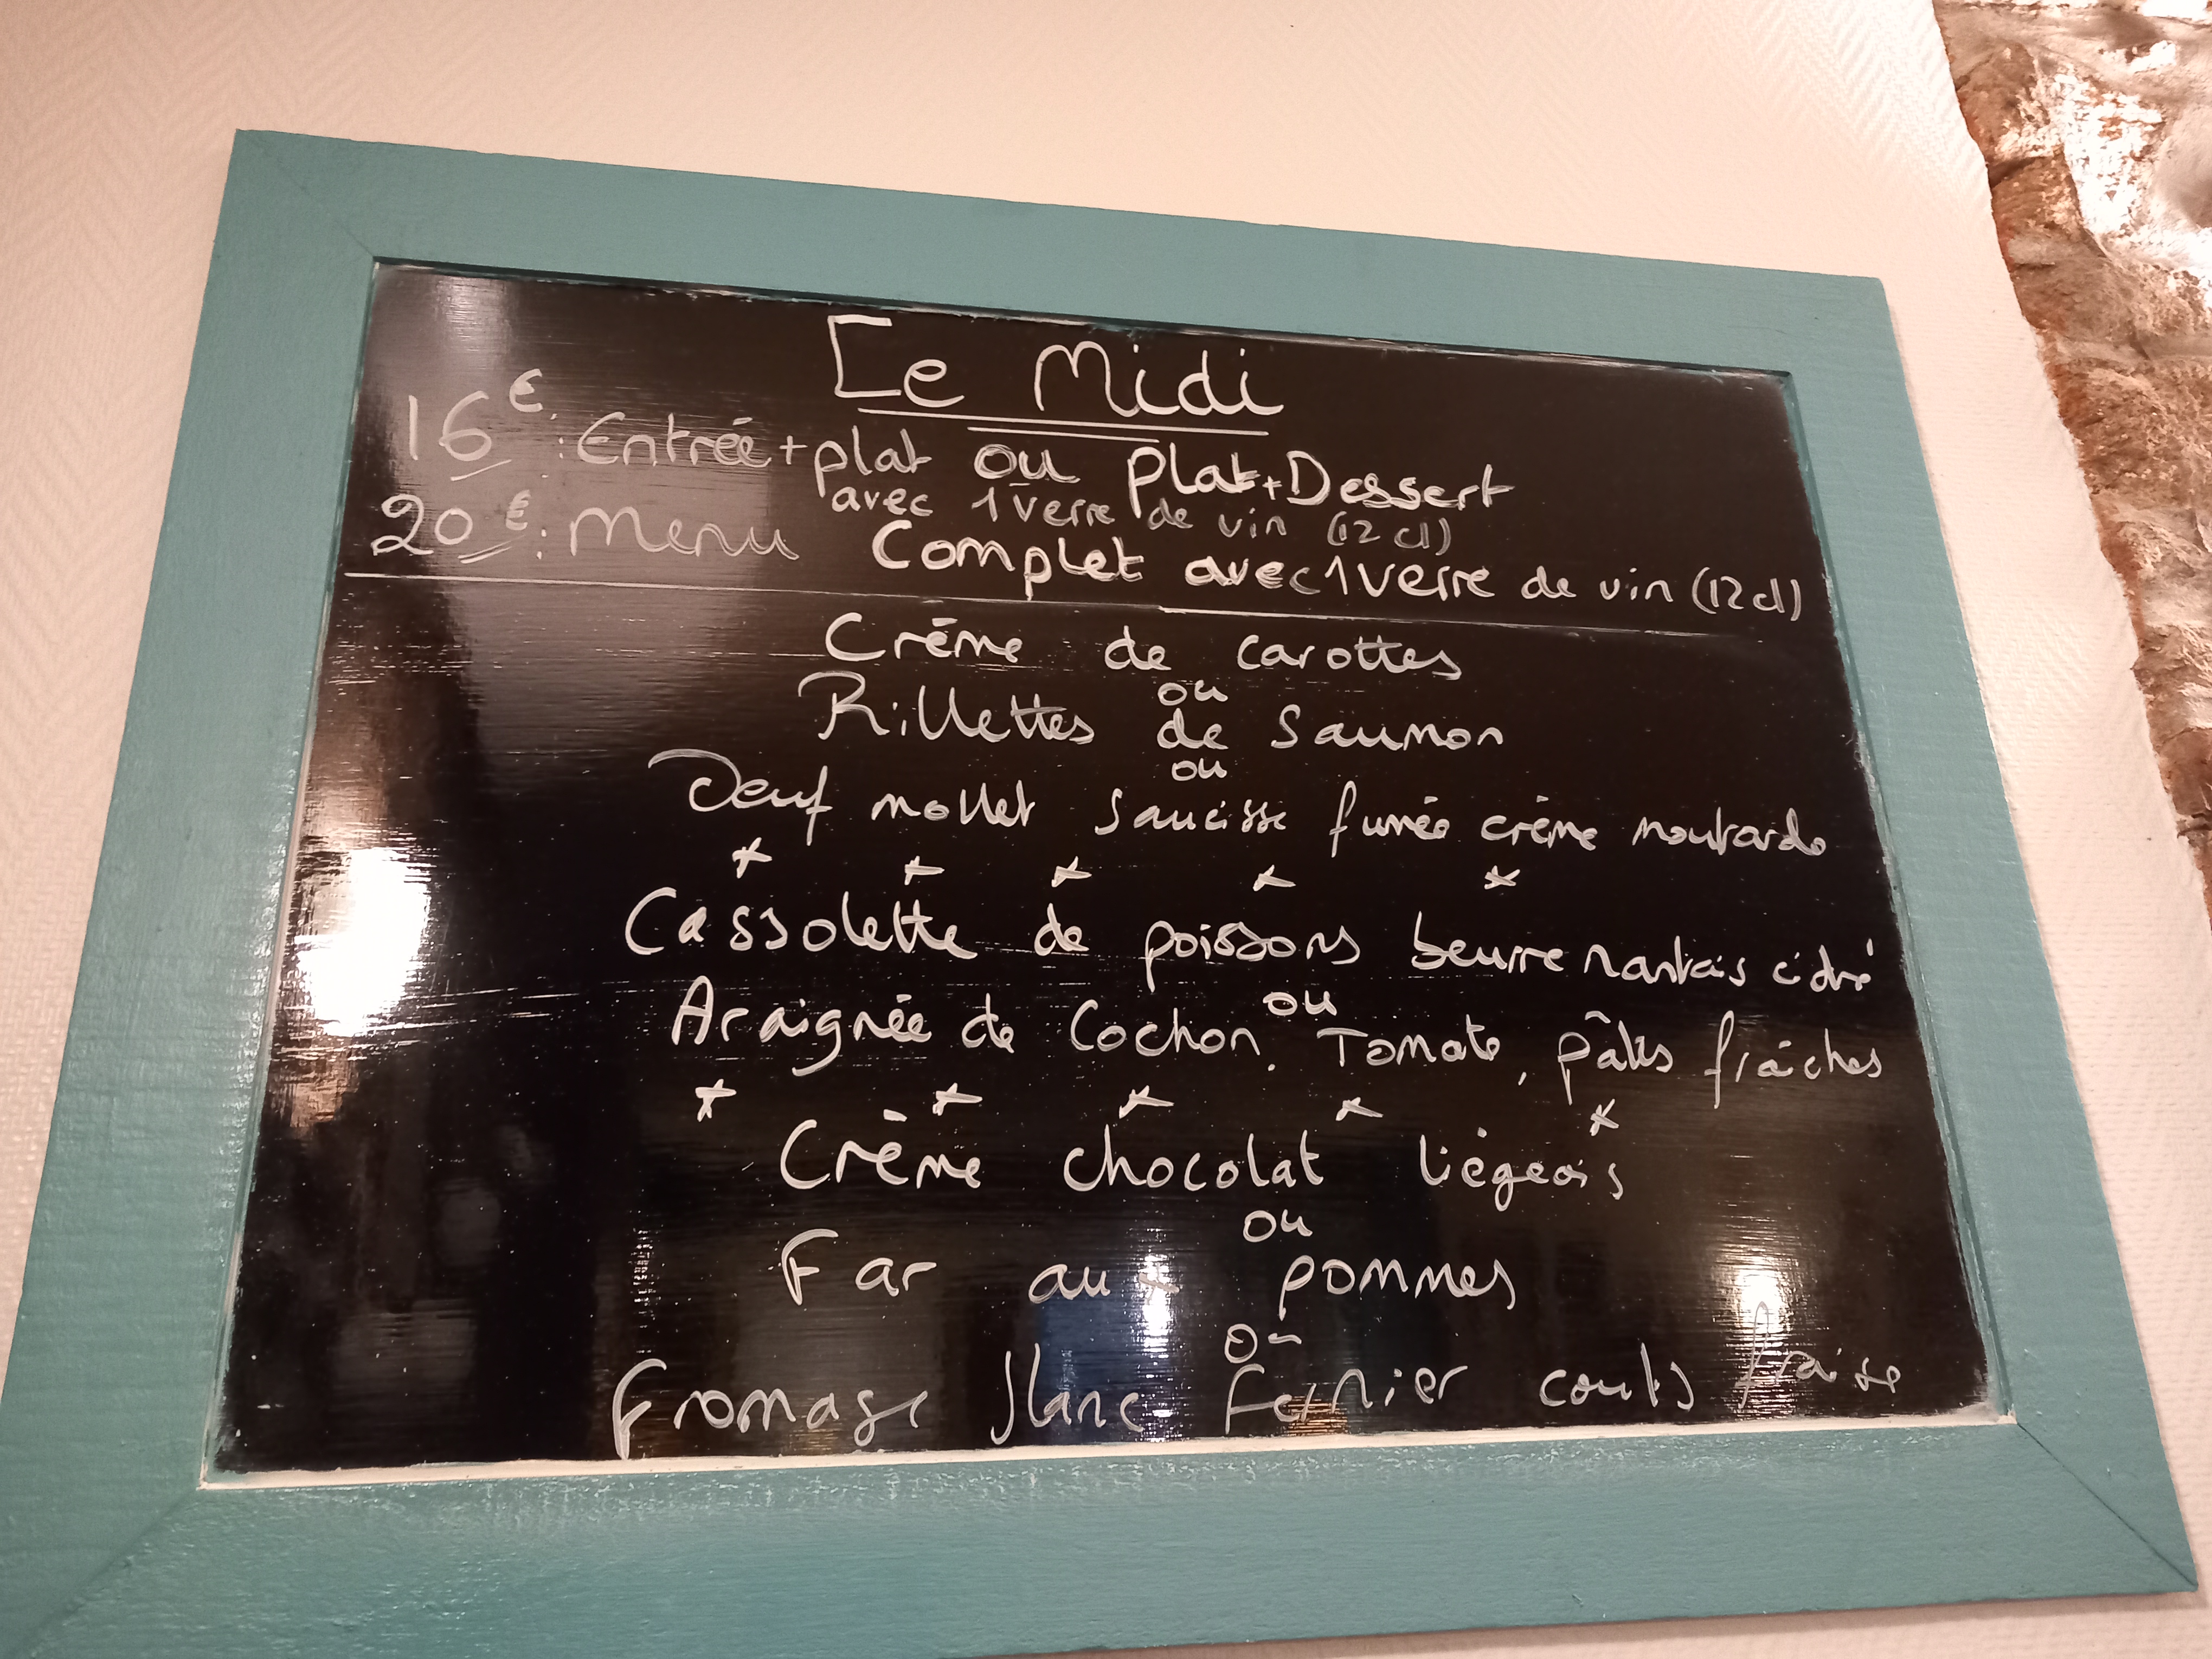 Le Midi
16€ : Entrée + plat ou plat + Dessert
avec 1 verre de vin (12 cl)
20€ : Menu Complet avec 1 verre de vin (12 cl)
Crème de carottes
ou
Rillettes de Saumon
ou
Oeuf mollet saucisse fumée crème moutarde
* * * * *
Cassolette de poissons beurre nantais cidré
ou
Araignée de Cochon. Tomate, pâtes fraîches
* * * * *
Crème chocolat liégeois
ou
Far aux pommes
ou
Fromage blanc Fermier coulis fraise